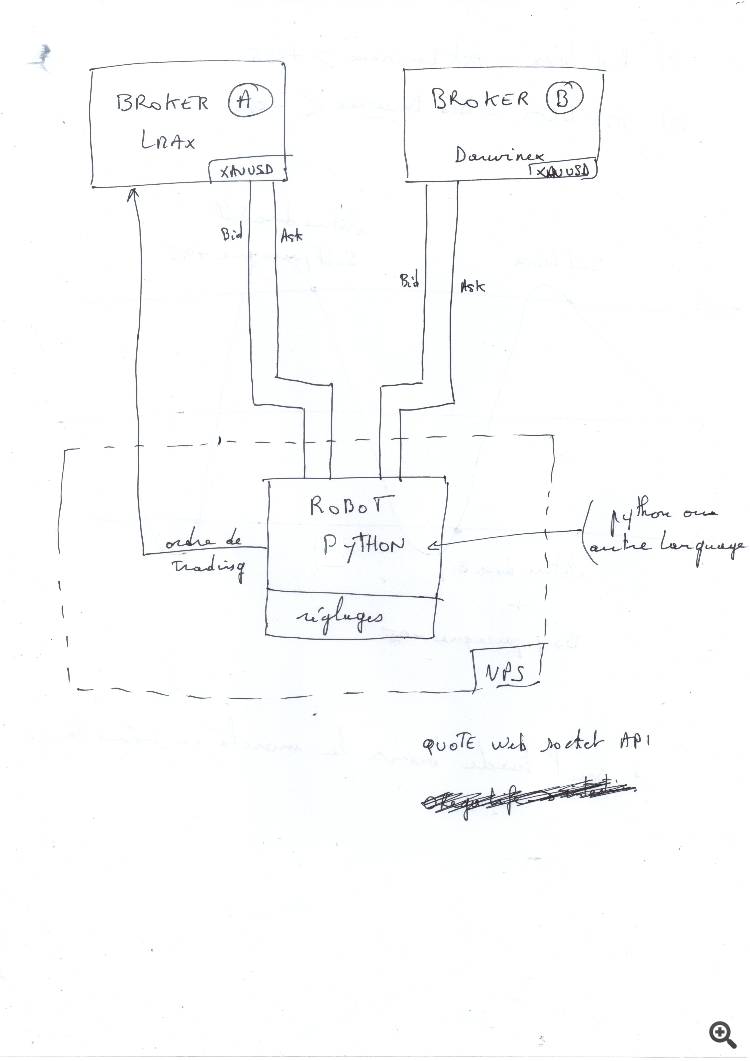 BROKER A
LMAX
XAUUSD
BROKER B
Darwinex
XAUUSD
Bid
Ask
Bid
Ask
ROBOT
PYTHON
réglages
ordre de
trading
python ou
autre language
VPS
QUOTE Web socket API